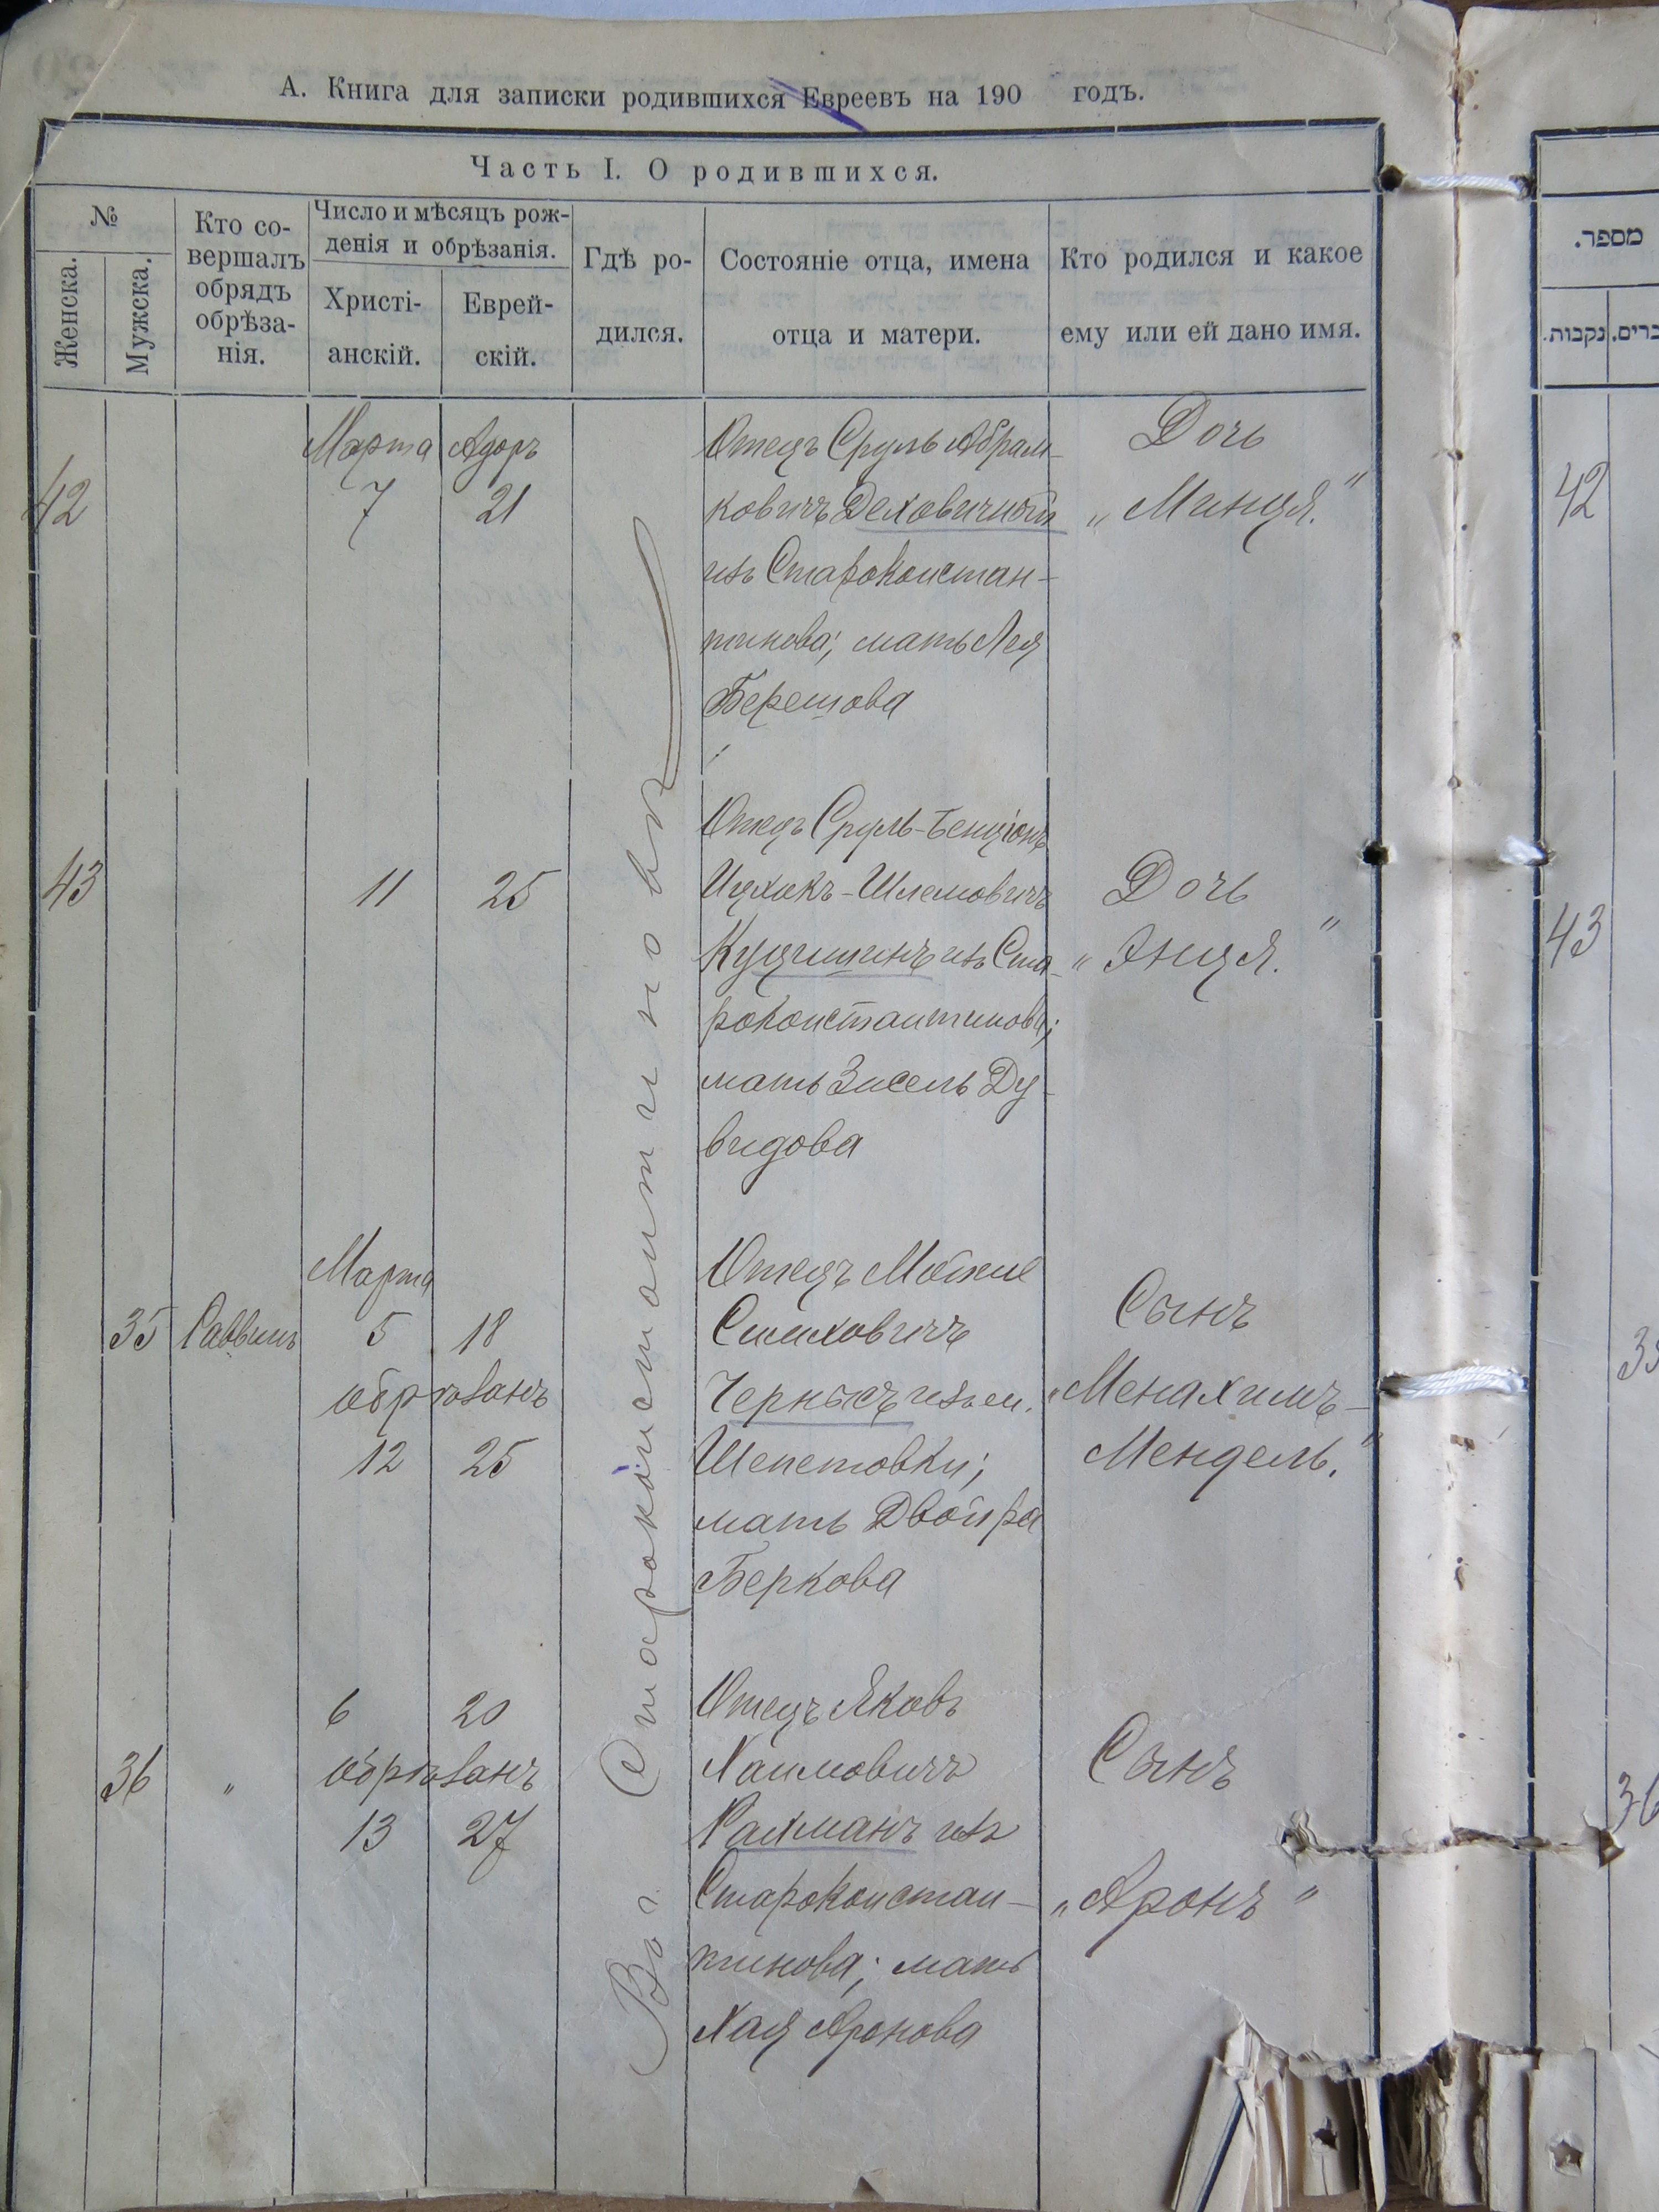 А. Книга для записки родившихся Евреевъ на 190 годъ.
Часть I. О родившихся.
№
Женска.
Мужска.
Кто со-
вершалъ
обрядъ
обрѣза-
нія.
Число и мѣсяцъ рож-
денія и обрѣзанія.
Христі-
анскій.
Еврей-
скій.
Гдѣ ро-
дился.
Состояніе отца, имена
отца и матери.
Кто родился и какое
ему или ей дано имя.
מספר.
נקבות.
Въ г. Старокопстантиновѣ
42
Марта Адоръ
7 21
Отецъ Сруль Абрам-
ковичъ Деховичный
изъ Старокопстан-
тинова; мать Лея
Берешова
Дочь
„Минця."
42
43
11 25
Отецъ Сруль-Бенціонъ
Ицхокъ-Шлемовичъ
Куцитинъ изъ Ста-
роконстантинова;
мать Зисель Ду-
видова
Дочь
„Энця."
43
35 Раввинъ
Марта
5 18
обрѣзанъ
12 25
Отецъ Мойше
Симховичъ
Чернысъ изъ м.
Шепетовки;
мать Двойра
Беркова
Сынъ
„Менахимъ-
Мендель."
36 „
6 20
обрѣзанъ
13 27
Отецъ Яковъ
Хаимовичъ
Рахманъ изъ
Староконстан-
тинова; мать
Хая Аронова
Сынъ
„Аронъ"
36